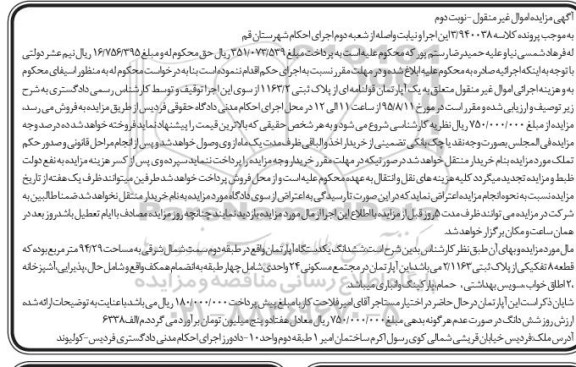 آگهی مزایده اموال غیر منقول - نوبت دوم
به موجب پرونده کلاسه ۳/۹۴۰۰۳۸ این اجرا و نیابت واصله از شعبه دوم اجرای احکام شهرستان قم
له فرهاد شمسی نیا و علیه حمیدرضا رستم پور که محکوم علیه است به پرداخت مبلغ ۳۵۱/۰۷۳/۵۳۹ ریال حق محکوم له و مبلغ ۱۶/۷۵۶/۳۹۵ ریال نیم عشر دولتی
با توجه به اینکه اجرائیه صادره به محکوم علیه ابلاغ شده و در مهلت مقرر نسبت به اجرای حکم اقدام ننموده است بنا به درخواست محکوم له به منظور استیفای محکوم
به و هزینه اجرائی اموال غیر منقول متعلق به یک آپارتمان قولنامه ای از پلاک ثبتی ۱۱۶۳/۲ از سوی این اجرا توقیف و توسط کارشناس رسمی دادگستری به شرح
زیر توصیف و ارزیابی شده و مقرر است در مورخ ۹۵/۸/۱۱ از ساعت ۱۱ الی ۱۲ در محل اجرای احکام مدنی دادگاه حقوقی فردیس از طریق مزایده به فروش می رسد،
مزایده از مبلغ ۷۵۰/۰۰۰/۰۰۰ ریال نظریه کارشناسی شروع می شود و به هر شخص حقیقی که بالاترین قیمت را پیشنهاد نماید فروخته خواهد شد ده درصد وجه
مزایده فی المجلس بصورت وجه نقد یا چک بانکی تضمینی از خریدار اخذ و الباقی ظرف مدت یک ماه از وی وصول خواهد شد و پس از انجام مراحل قانونی و صدور حکم
تملک مورد مزایده بنام خریدار منتقل خواهد شد در صورتیکه در مهلت مقرر خریدار وجه مزایده را پرداخت ننماید سپرده وی پس از کسر هزینه مزایده به نفع دولت
ظبط و مزایده تجدید میگردد کلیه هزینه های نقل و انتقال به عهده محکوم علیه است و از محل فروش پرداخت خواهد شد طرفین میتوانند ظرف یک هفته از تاریخ
مزایده نسبت به نحوه انجام مزایده اعتراض نماید که در این صورت تا رسیدگی به اعتراض از سوی دادگاه مورد مزایده به نام خریدار منتقل نخواهد شد ضمنا طالبین به
شرکت در مزایده می توانند ظرف مدت ۵ روز قبل از مزایده با اطلاع این اجرا از مال مورد مزایده بازدید نمایند چنانچه روز مزایده مصادف با ایام تعطیل باشد روز بعد در
همان ساعت و مکان برگزار خواهد شد.
مال مورد مزایده و بهای آن طبق نظر کارشناس بدین شرح است: ششدانگ یکدستگاه آپارتمان واقع در طبقه دوم سمت شمال شرقی به مساحت ۹۴/۲۹ متر مربع بوده که
قطعه ۸ تفکیکی از پلاک ثبتی ۲/۱۱۶۳ می باشد این آپارتمان در مجتمع مسکونی ۲۴ واحدی شامل چهار طبقه به انضمام همکف واقع و شامل حال، پذیرایی، آشپزخانه
،۲ اطاق خواب سرویس بهداشتی، حمام، پارکینگ و انباری میباشد.
شایان ذکر است این آپارتمان در حال حاضر در اختیار مستاجر آقای امیر فلاحت کار با مبلغ پیش پرداخت ۱۸۰/۰۰۰/۰۰۰ ریال می باشد با عنایت به توضیحات ارائه شده
ارزش روز شش دانگ در صورت عدم هر گونه بدهی مبلغ ۷۵۰/۰۰۰/۰۰۰ ریال معادل هفتاد و پنج میلیون تومان برآورد می گردد.م/الف۶۳۳۸
آدرس ملک:فردیس خیابان قریشی شمالی کوی رسول اکرم ساختمان امیر ۱ طبقه دوم واحد ۱۰-دادورز اجرای احکام مدنی دادگستری فردیس-کولیوند